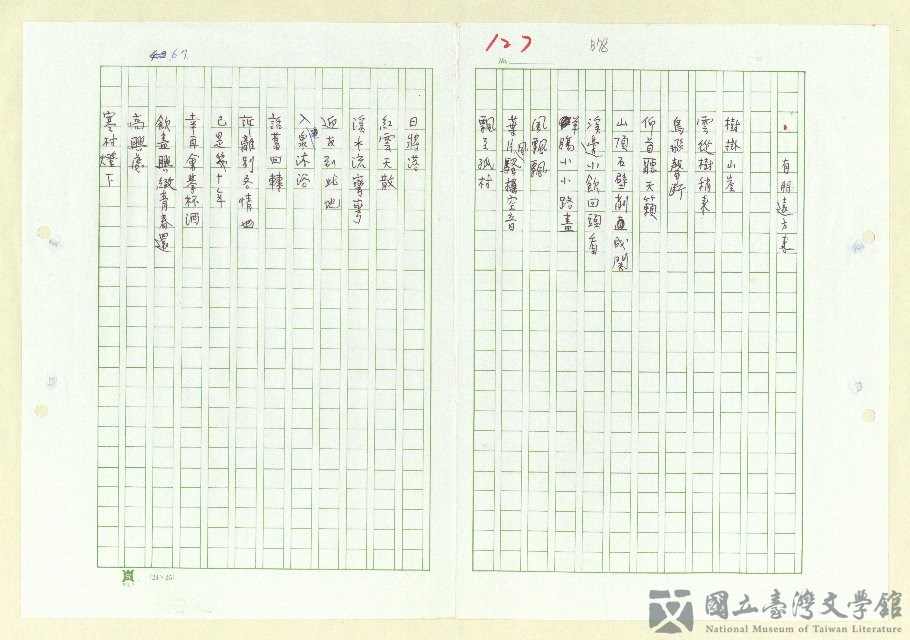 127
578
No.
有朋遠方來
樹掛山崖
雲從樹稍來
鳥飛聲斷
仰首聽天籟
山頂石壁削直成關
溪邊小飲回頭看
羊腸小小路盡
風飄飄
葉片
飄至孤村
67
日將落
紅雲天散
溪水流彎彎
近友到此地
入泉沐浴
話舊回轉
訴離別冬情
已是幾十年
幸再會舉杯酒
飲盡興緻青春還
高興處
寒村燈下
(24×25)
國立臺灣文學館
National Museum of Taiwan Literature